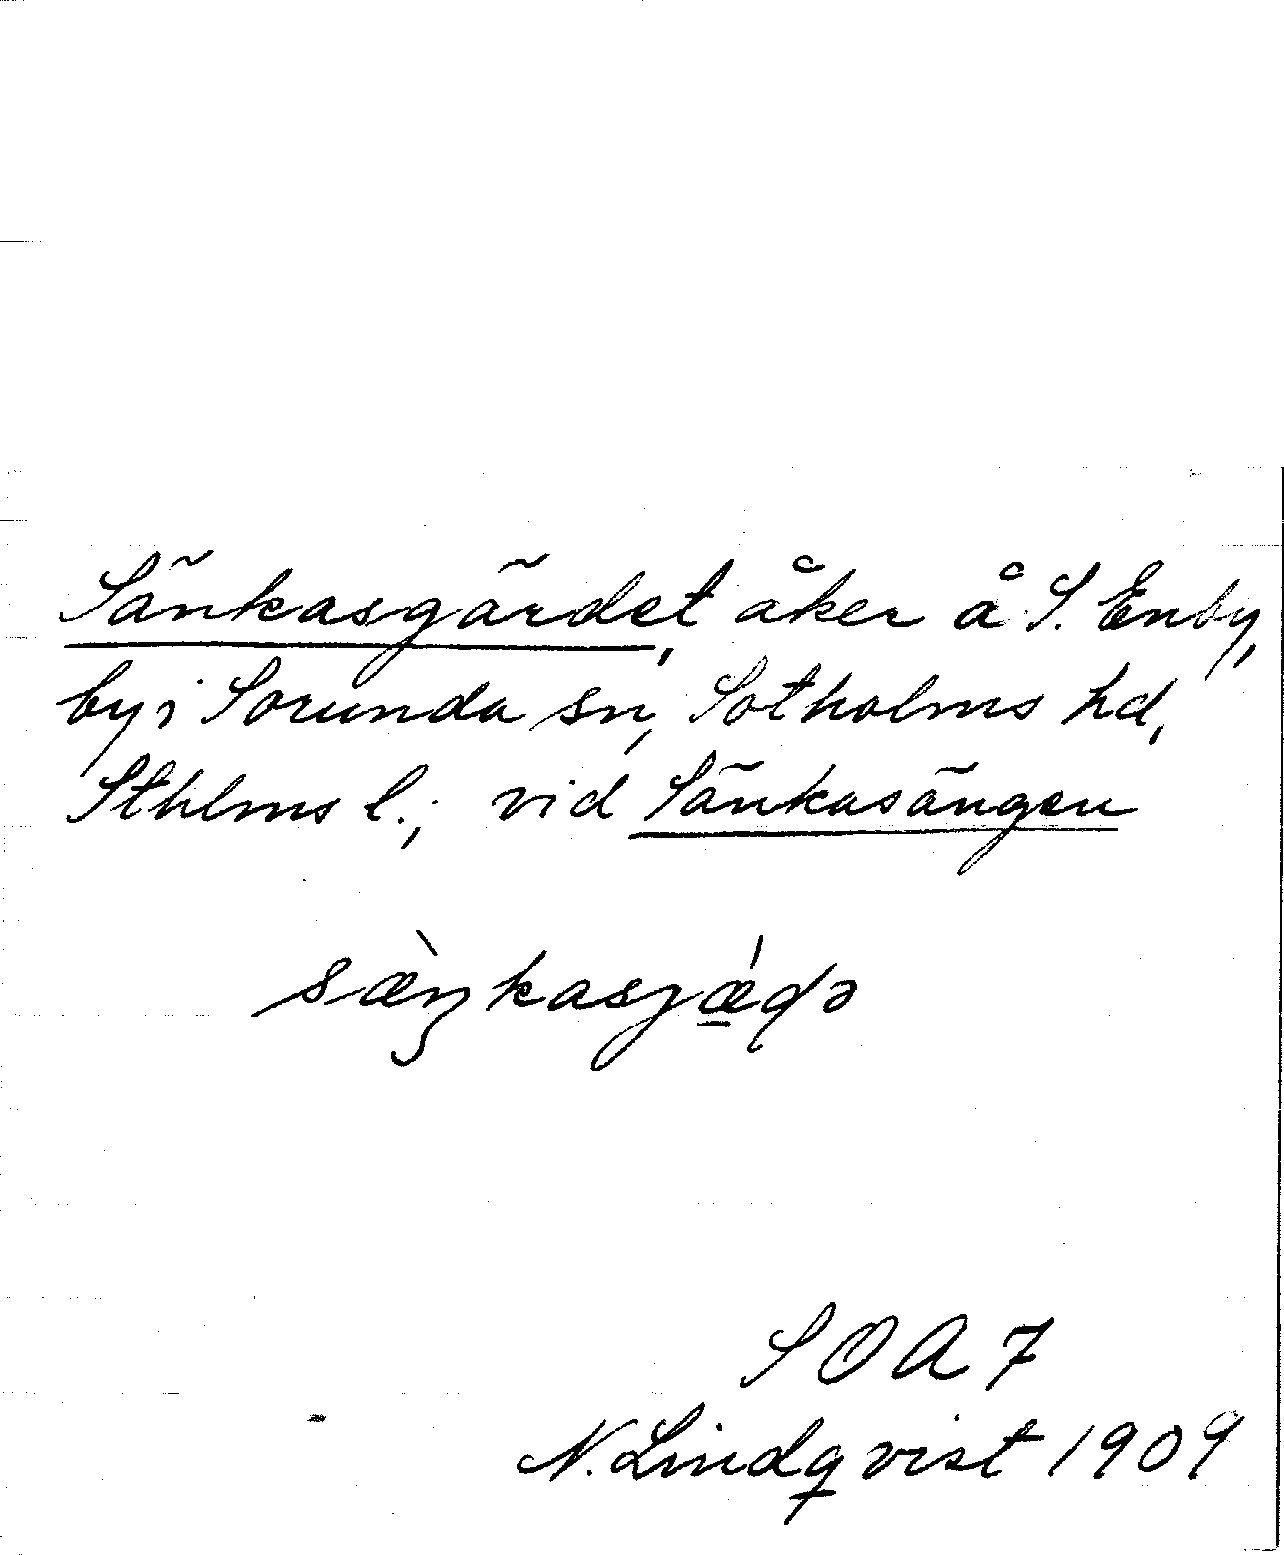 Sänkasgärdet, åker å S. Enby,
by i Sorunda sn, Sotholms hd,
Sthlms l.; vid Sänkasängen
sæ̀ŋkasjǽ̠ɖə
SOA 7
N. Lindqvist 1909